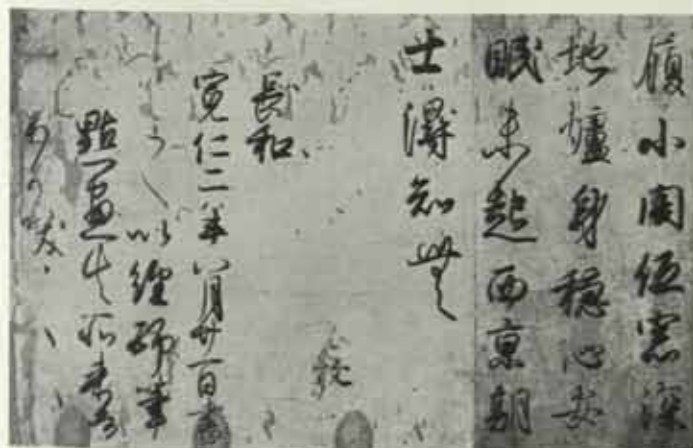 履小閣低窓深
地爐身穩心安
眠未起西京朝
士得知無
長和
寛仁二年八月廿一日書
之以經師筆
點畫失所来者
不可咲ゝゝ